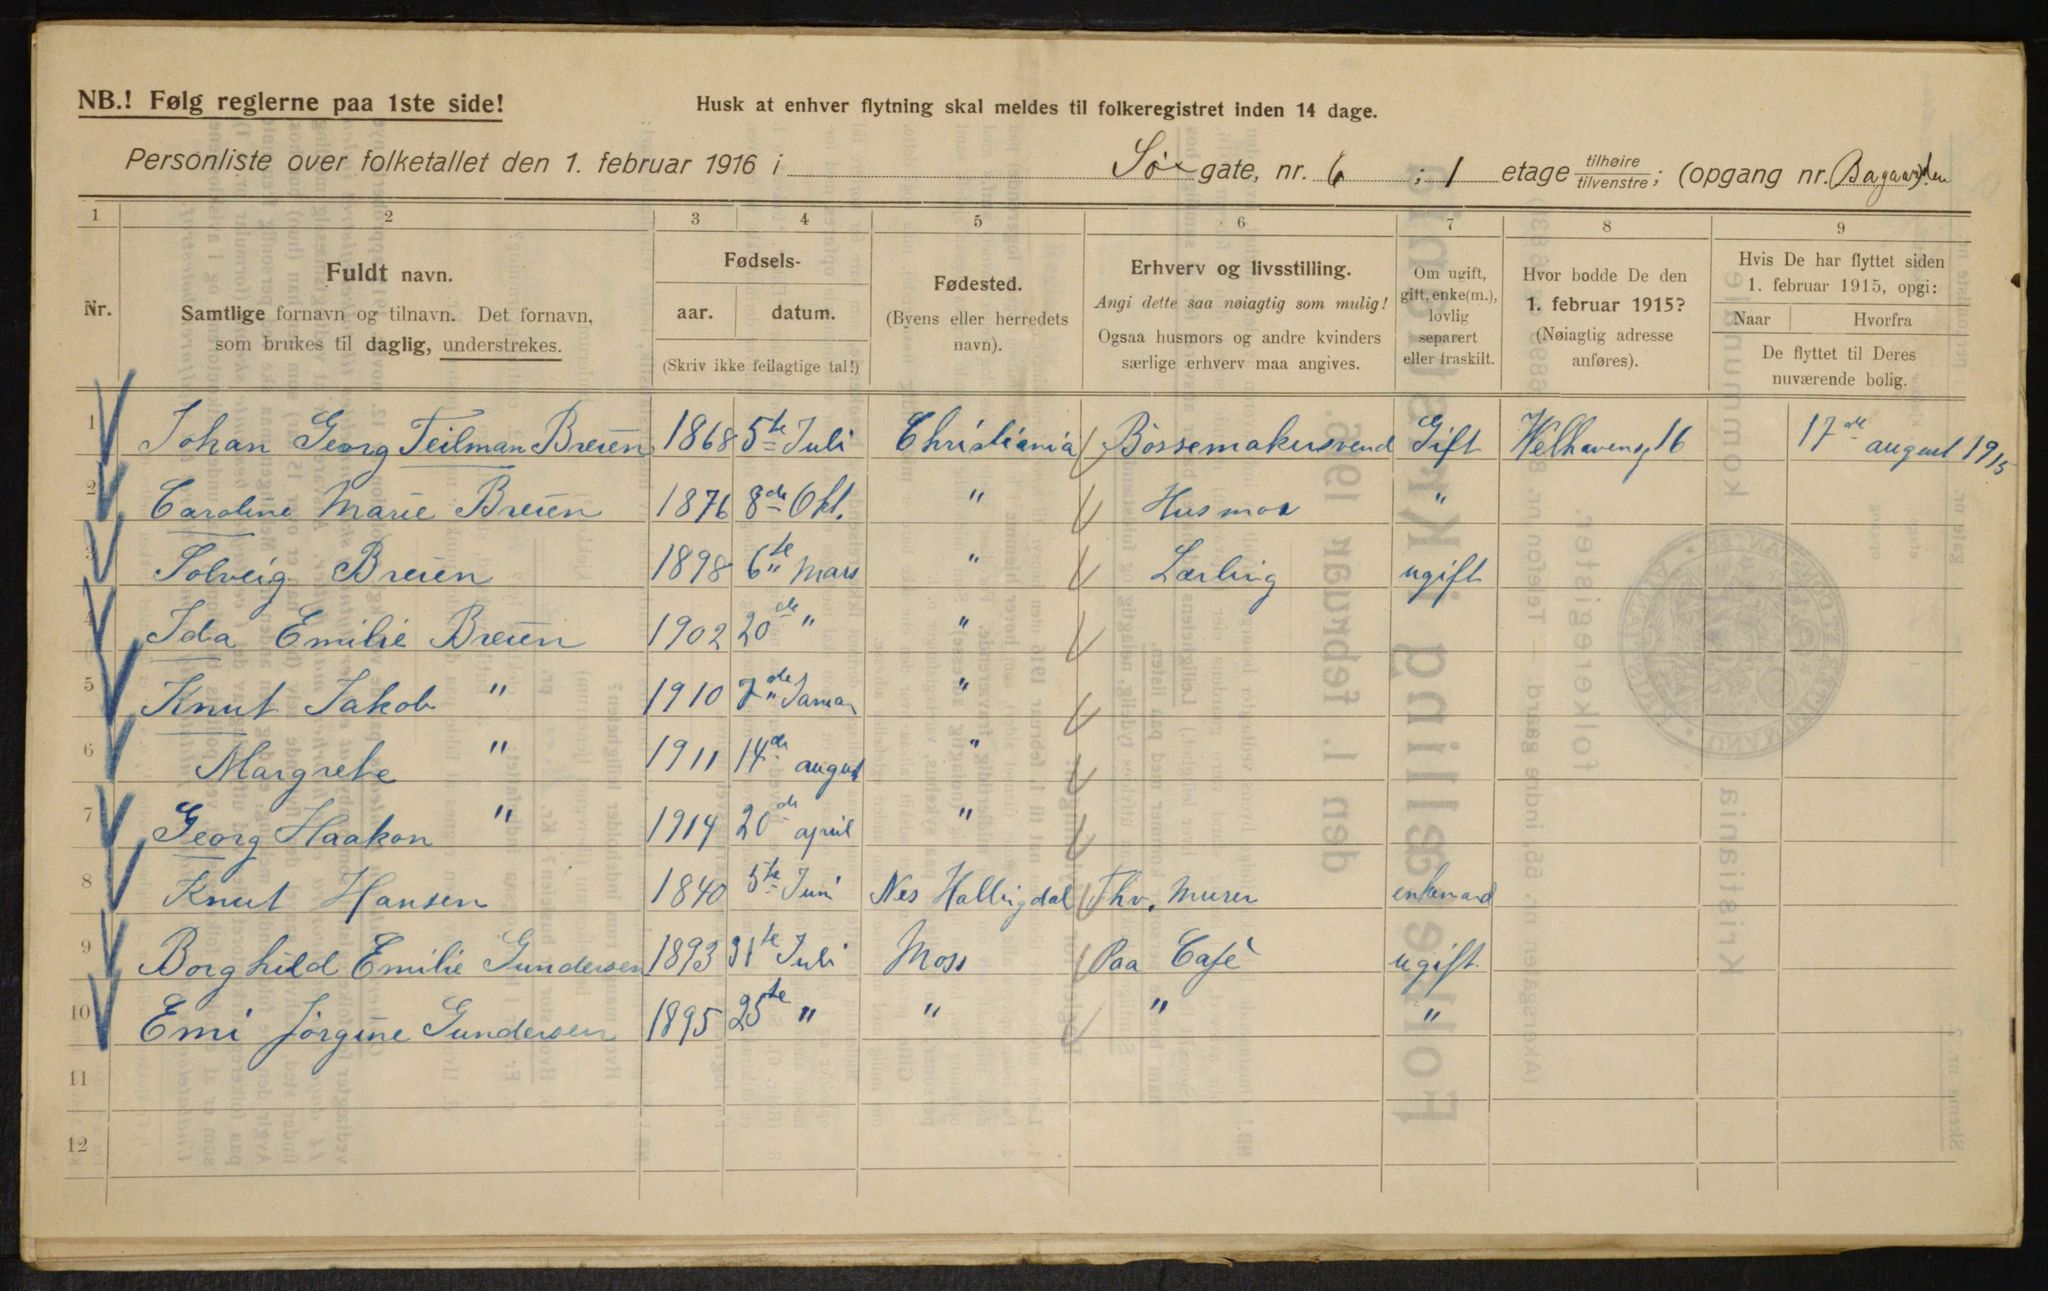 NB.! Følg reglerne paa 1ste side!
Husk at enhver flytning skal meldes til folkeregistret inden 14 dage.
Personliste over folketallet den 1. februar 1916 i Sø gate, nr. 6 ; 1 etage tilhøire tilvenstre; (opgang nr. Bagaarden)
1 2 3 4 5 6 7 8 9
Nr.
Fuldt navn.
Samtlige fornavn og tilnavn. Det fornavn,
som brukes til daglig, understrekes.
Fødsels-
aar. datum.
(Skriv ikke feilagtige tal!)
Fødested.
(Byens eller herredets
navn).
Erhverv og livsstilling.
Angi dette saa nøiagtig som mulig!
Ogsaa husmors og andre kvinders
særlige erhverv maa angives.
Om ugift,
gift, enke(m.),
lovlig
separert
eller fraskilt.
Hvor bodde De den
1. februar 1915?
(Nøiagtig adresse
anføres).
Hvis De har flyttet siden
1. februar 1915, opgi:
Naar Hvorfra
De flyttet til Deres
nuværende bolig.
1 Johan Georg Teilman Breien 1868 5te Juli Christiania Bössemakersvend Gift Welhavensg 16 17de august 1915
2 Caroline Marie Breien 1876 8de Okt. " Husmor "
3 Solveig Breien 1898 6te Mars " Lærling ugift
4 Ida Emilie Breien 1902 20de " "
5 Knut Jakob " 1910 7de Januar "
6 Margrete " 1911 14de august "
7 Georg Haakon " 1914 20de april "
8 Knut Hansen 1840 5te Juni Nes Hallingdal Fhv. Murer enkemand
9 Borghild Emilie Gundersen 1893 31te Juli Moss Paa Café ugift
10 Emi Jörgine Gundersen 1895 25te " " " "
11
12